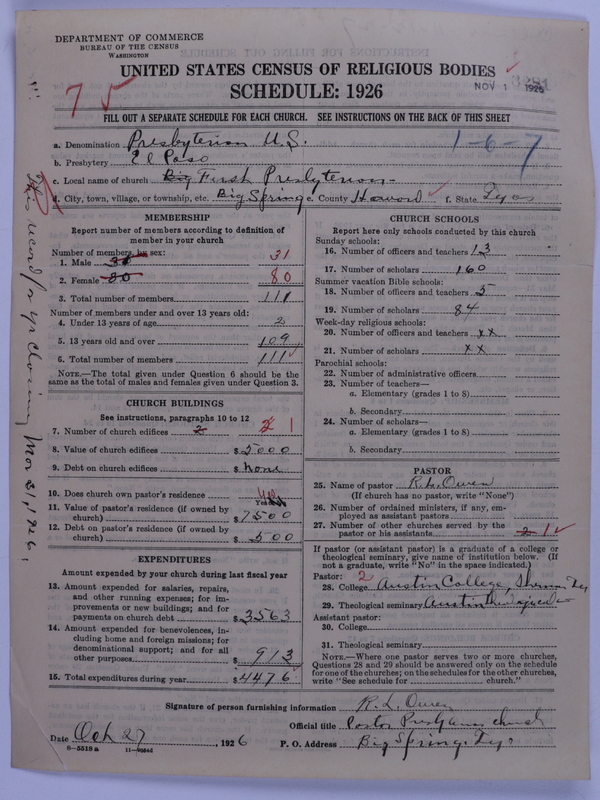 DEPARTMENT OF COMMERCE
BUREAU OF THE CENSUS
WASHINGTON
UNITED STATES CENSUS OF RELIGIOUS BODIES
SCHEDULE: 1926
NOV 1 1926
75
FILL OUT A SEPARATE SCHEDULE FOR EACH CHURCH. SEE INSTRUCTIONS ON THE BACK OF THIS SHEET
a. Denomination Presbyterian U.S. 1-6-7
b. Presbytery El Paso
c. Local name of church Big First Presbyterian
d. City, town, village, or township, etc. Big Spring e. County Howard f. State Texas
This record for yr closing Mar 31, 1926,
MEMBERSHIP
Report number of members according to definition of
member in your church
Number of members by sex:
1. Male 31 31
2. Female 80 80
3. Total number of members 111
Number of members under and over 13 years old:
4. Under 13 years of age 2
5. 13 years old and over 109
6. Total number of members 111
NOTE.—The total given under Question 6 should be the
same as the total of males and females given under Question 3.
CHURCH BUILDINGS
See instructions, paragraphs 10 to 12
7. Number of church edifices 2 2 1
8. Value of church edifices $ 5000
9. Debt on church edifices $ None
10. Does church own pastor's residence yes
11. Value of pastor's residence (if owned by
church) $ 7500
12. Debt on pastor's residence (if owned by
church) $ 500
EXPENDITURES
Amount expended by your church during last fiscal year
13. Amount expended for salaries, repairs,
and other running expenses; for im-
provements or new buildings; and for
payments on church debt $ 3563
14. Amount expended for benevolences, in-
cluding home and foreign missions; for
denominational support; and for all
other purposes $ 913
15. Total expenditures during year $ 4476
CHURCH SCHOOLS
Report here only schools conducted by this church
Sunday schools:
16. Number of officers and teachers 13
17. Number of scholars 160
Summer vacation Bible schools:
18. Number of officers and teachers 5
19. Number of scholars 84
Week-day religious schools:
20. Number of officers and teachers xx
21. Number of scholars xx
Parochial schools:
22. Number of administrative officers
23. Number of teachers—
a. Elementary (grades 1 to 8)
b. Secondary
24. Number of scholars—
a. Elementary (grades 1 to 8)
b. Secondary
PASTOR
25. Name of pastor R. L. Owen
(If church has no pastor, write "None")
26. Number of ordained ministers, if any, em-
ployed as assistant pastors
27. Number of other churches served by the
pastor or his assistants 2 1
If pastor (or assistant pastor) is a graduate of a college or
theological seminary, give name of institution below. (If
not a graduate, write "No" in the space indicated.)
Pastor: 2
28. College Austin College, Sherman Tex
29. Theological seminary Austin
Assistant pastor:
30. College
31. Theological seminary
NOTE.—Where one pastor serves two or more churches,
Questions 28 and 29 should be answered only on the schedule
for one of the churches; on the schedules for the other churches,
write "See schedule for church."
Signature of person furnishing information R. L. Owen
Official title Pastor Presbyterian church
Date Oct 27, 1926 P. O. Address Big Spring, Tex
6—5518a